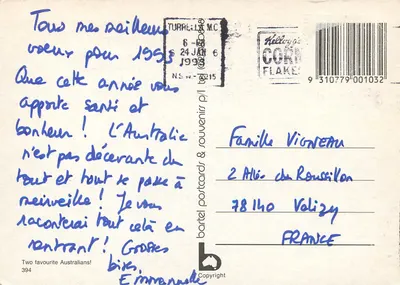 Tous mes meilleurs
voeux pour 1993
Que cette année vous
apporte santé et
bonheur ! L'Australie
n'est pas décevante du
tout et tout se passe à
merveille ! Je vous
raconterai tout cela en
rentrant ! Grosses
bises,
Emmanuelle
Two favourite Australians!
394
TURRELLA M.C
6 - PM
24 JAN 6
1993
N.S.W. 2215
Kellogg's
CORN
FLAKES
9 310779 001032
bartel postcards & souvenirs p/l
Famille VIGNEAU
2 Allée du Roussillon
78140 Velizy
FRANCE
b
Copyright